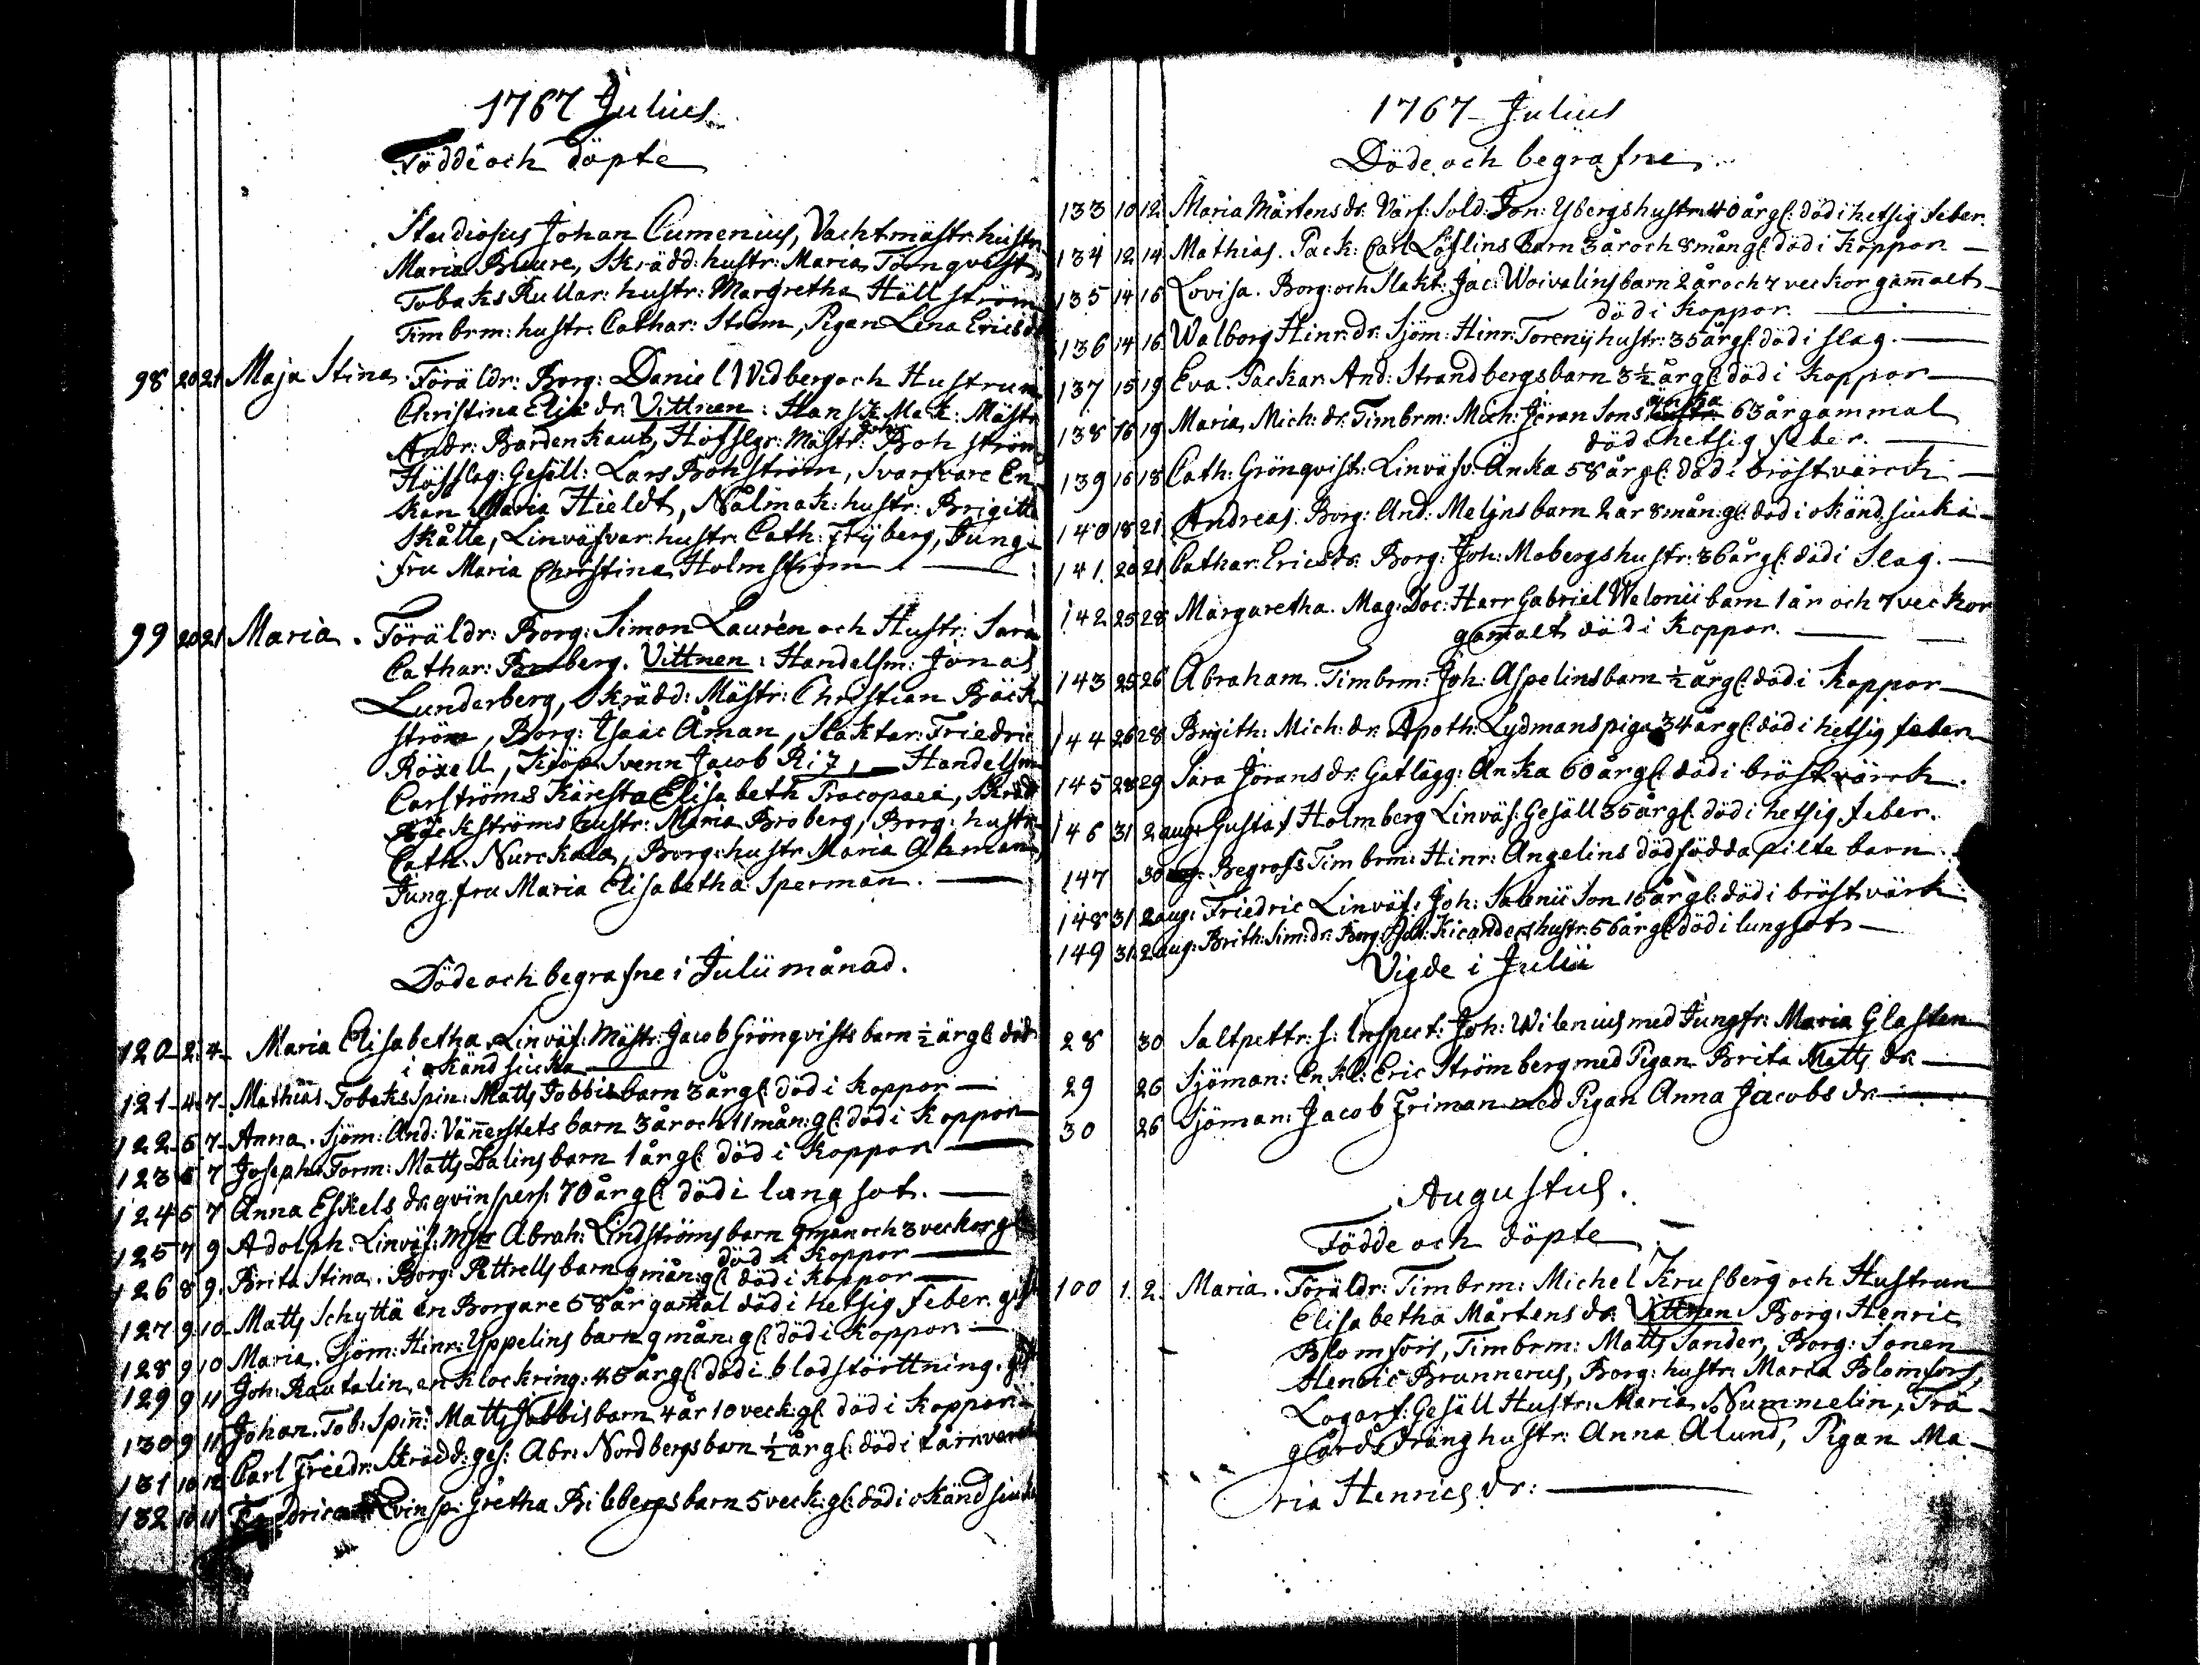 1767 Julius
Födde och döpte
Studiosus Johan Cumenius, Vachtmästr: hustr:
Maria Buure, Skrädd: hustr: Maria Törnqvist,
Tobaks Rullar: hustr: Margretha Hällström
Timbrm: hustr: Cathar: Ström, Pigan Lena Ericsdr
98 20 21 Maja Stina. Föräldr: Borg: Daniel Widberg och Hustrun
Christina Elis dr. Vittnen: Handsk Mak: Mästr
Andr: Bardenkaut, Hofslgr: Mästr: Joh: Bohström
Hofslag: Gesäll: Lars Bohström, Svarfvare En-
kan Maria Hieldt, Nålmak: hustr: Brigitta
Skåtte, Linväfvar: hustr: Cath: Flyberg, Jung-
fru Maria Christina Holmström
99 20 21 Maria. Föräldr: Borg: Simon Laurén och Hustr: Sara
Cathar: berg. Vittnen: Handelsm: Jonas
Lunderberg, Skrädd: Mästr: Christian Bäck
ström, Borg: Isaac Åman, Slaktar: Friedric
Röxell, Kiöp Svenn Jacob Riz, Handelsm
Carströms Käresta Elisabeth Procopaea, Skrädd
Bäckströms hustr: Maria Broberg, Borg: hustr:
Cath: Nurckala, Borg: hustr Maria Åkman,
Jungfru Maria Elisabetha Sperman.
Döde och begrafne i Julii månad.
120 2. 4. Maria Elisabetha Linväf: Mästr: Jacob Grönqvists barn ½ år gl: död
i okänd siucka
121 4. 7. Mathias. Tobaks Spin: Matts Jobbis barn 3 år gl: död i Koppor
122 6 7. Anna. Sjöm: And: Vännerstets barn 3 år och 11 mån: gl: död i Koppor
123 6 7 Joseph. Torm: Matts Dalins barn 1 år gl: död i Koppor
124 5 7 Anna Eskels dr qvinspers: 70 år gl: död i lungsot.
125 7 9 Adolph. Linväf: Mstr Abrah: Lindströms barn 9 mån och 3 veckor gl
död i Koppor
126 8 9. Brita Stina. Borg: Pettrells barn 9 mån: gl: död i Koppor
127 9 10 Matts Schyttä en Borgare 58 år gamal död i hetsig Feber. gift
128 9 10 Maria. Sjöm: Hinr: Uppelins barn 9 mån: gl: död i Koppor
129 9 11 Joh: Rautalin, en Klockring: 45 år gl: död i blodstörttning. gift
130 9 11 Johan. Tob: Spin: Matts Jobbis barn 4 år 10 veck: gl: död i Koppor
131 10 12 Carl Friedr: Skrädd: ges: Abr: Nordbergs barn ½ år gl: död i
132 10 11 Qvinsp: Gretha Bilbergs barn 5 veck: gl: död i okänd siucka
1767 Julius
Döde och begrafne
133 10 12 Maria Mårtens dr. Värf: Sold: Jon: Ybergs hustr: 40 år gl: död i hetsig feber.
134 12 14 Mathias. Pack: Carl Löflins barn 3 år och 8 mån gl: död i Koppor
135 14 16 Lovisa. Borg: och Slakt: Jac: Woivalins barn 2 år och 7 veckor gamalt
död i Koppor.
136 14 16 Walborg Hinr: dr. Sjöm: Hinr: Torenij hustr: 35 år gl: död i slag.
137 15 19 Eva. Packar: And: Strandbergs barn 3½ år gl: död i Koppor
138 16 19 Maria Mich: dr. Timbrm: Mich: Jöran Sons änka 63 år gammal
död i hetsig feber.
139 16 18 Cath: Grönqvist: Linväfv: Änka 58 år gl: död i bröstvärck
140 18 21. Andreas. Borg: And: Melins barn 2 år 8 mån: gl: död i okänd siucka
141. 20 21 Cathar: Erics dr. Borg: Joh: Mobergs hustr: 36 år gl: död i Slag.
142 25 28 Margaretha. Mag: Doc: Herr Gabriel Walonii barn 1 år och 7 veckor
gamalt död i Koppor.
143 25 26 Abraham. Timbrm: Joh: Aspelins barn ½ år gl: död i Koppor
144 26 28 Brigith: Mich: dr. Apoth: Lydmans piga 34 år gl: död i hetsig feber
145 28 29 Sara Jörans dr: Gatlägg: Änka 60 år gl: död i bröstvärck.
146 31 2 aug: Gustaf Holmberg Linväf: Gesäll 35 år gl: död i hetsig feber.
147 30 Begrofs Timbrm: Hinr: Angelins dödfödda pilte barn.
148 31 2 aug: Friedric Linväf: Joh: Salenii Son 15 år gl: död i bröstvärk
149 31. 2 aug: Brith: Sim: dr: Borg: Joh: Kicanders hustr: 56 år gl: död i lungsot
Vigde i Julii
28 30 Saltpettr: s: Inspect: Joh: Wilenius med Jungfr: Maria Glasten
29 26 Sjöman: Enkl: Eric Strömberg med Pigan Brita Matts dr.
30 26 Sjöman: Jacob Friman med Pigan Anna Jacobs dr.
Augustus.
Födde och döpte
100 1. 2. Maria. Föräldr: Timbrm: Michel Krusberg och Hustrun
Elisabetha Mårtens dr. Vittnen. Borg: Henric
Blomfors, Timbrm: Matts Sander, Borg: Sonen
Henric Brunnerus, Borg: hustr: Maria Blomfors,
Logarf: Gesäll Hustr: Maria Nummelin, Trä-
gårds dräng hustr: Anna Alund, Pigan Ma-
ria Henrics dr: